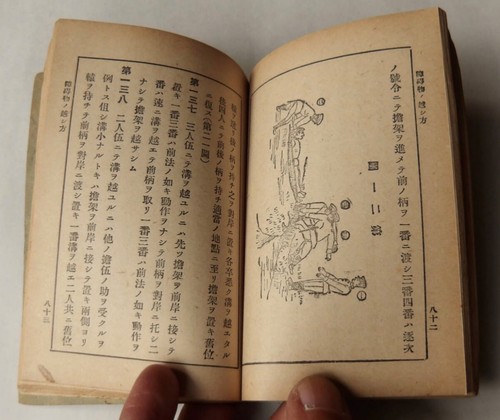 障碍物ノ越シ方
ノ號令ニテ擔架ヲ進メテ前ノ柄ヲ一番ニ渡シ三番四番ハ逐次
第二一圖
八十二
障碍物ノ越シ方
後ノ柄ヲ持チ之ヲ對岸ニ置キ各卒悉ク溝ヲ越エタル
後ノ柄ヲ持チ適當ノ地點ニ至リ擔架ヲ置キ舊位
ニ復ス(第二一圖)
第一三七 三人伍ニテ溝ヲ越ユルニハ先ヅ擔架ヲ前岸ニ接シテ
置キ一番三番ハ前法ノ如キ動作ヲナシテ前柄ヲ對岸ニ托シ二
番ハ速ニ溝ヲ越エテ前柄ヲ取リ一番三番ハ前法ノ如キ動作ヲ
ナシテ擔架ヲ越サシム
第一三八 二人伍ニテ溝ヲ越ユルニハ他ノ擔伍ノ助ヲ受クルヲ
例トス但シ溝小ナルトキハ擔架ヲ前岸ニ接シテ置キ兩側ヨリ
轅ヲ持チテ前柄ヲ對岸ニ渡シ置キ一番溝ヲ越エ二人共ニ舊位
八十三